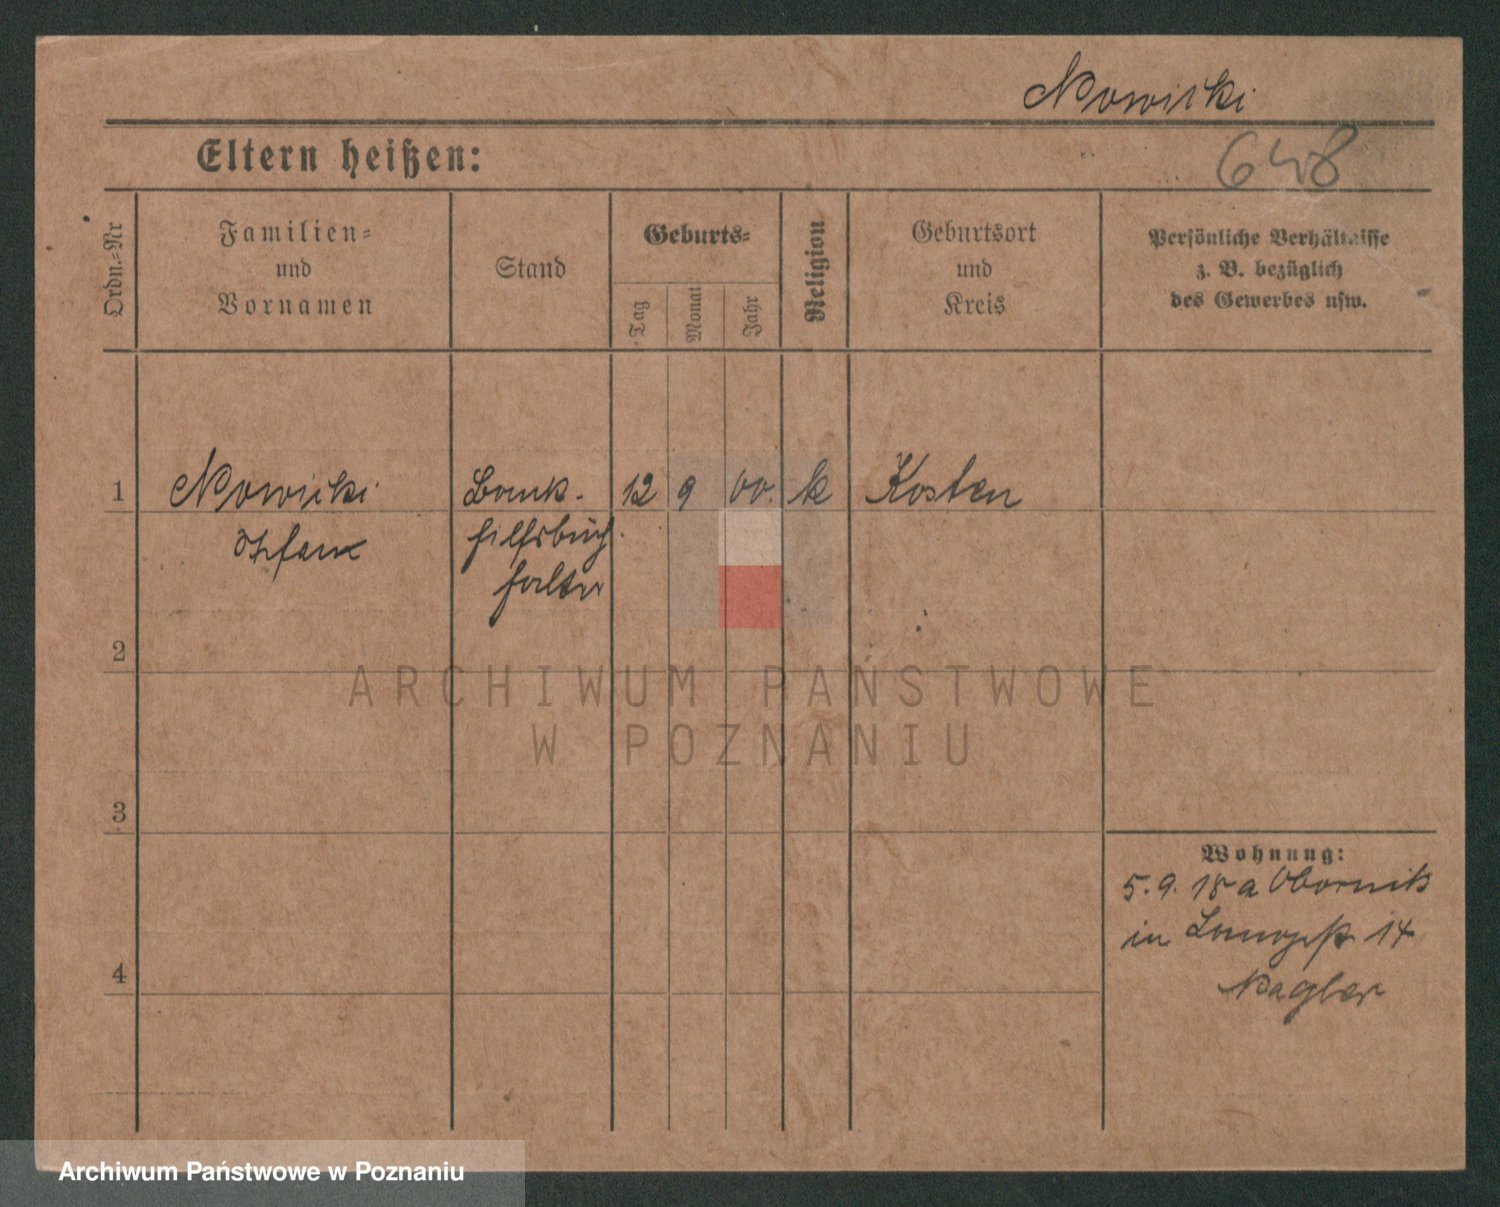 Nowicki
648
Eltern heißen:
Ordn.-Nr
Familien-
und
Vornamen
Stand
Geburts-
Tag
Monat
Jahr
Religion
Geburtsort
und
Kreis
Persönliche Verhältnisse
z. B. bezüglich
des Gewerbes usw.
1 Nowicki Bank- 12 9 00. k Kosten
Stefan hilfsbuch
halter
2
ARCHIWUM PAŃSTWOWE
W POZNANIU
3
Wohnung:
5.9.18 a Obornik
in 14
4
Nagler
Archiwum Państwowe w Poznaniu